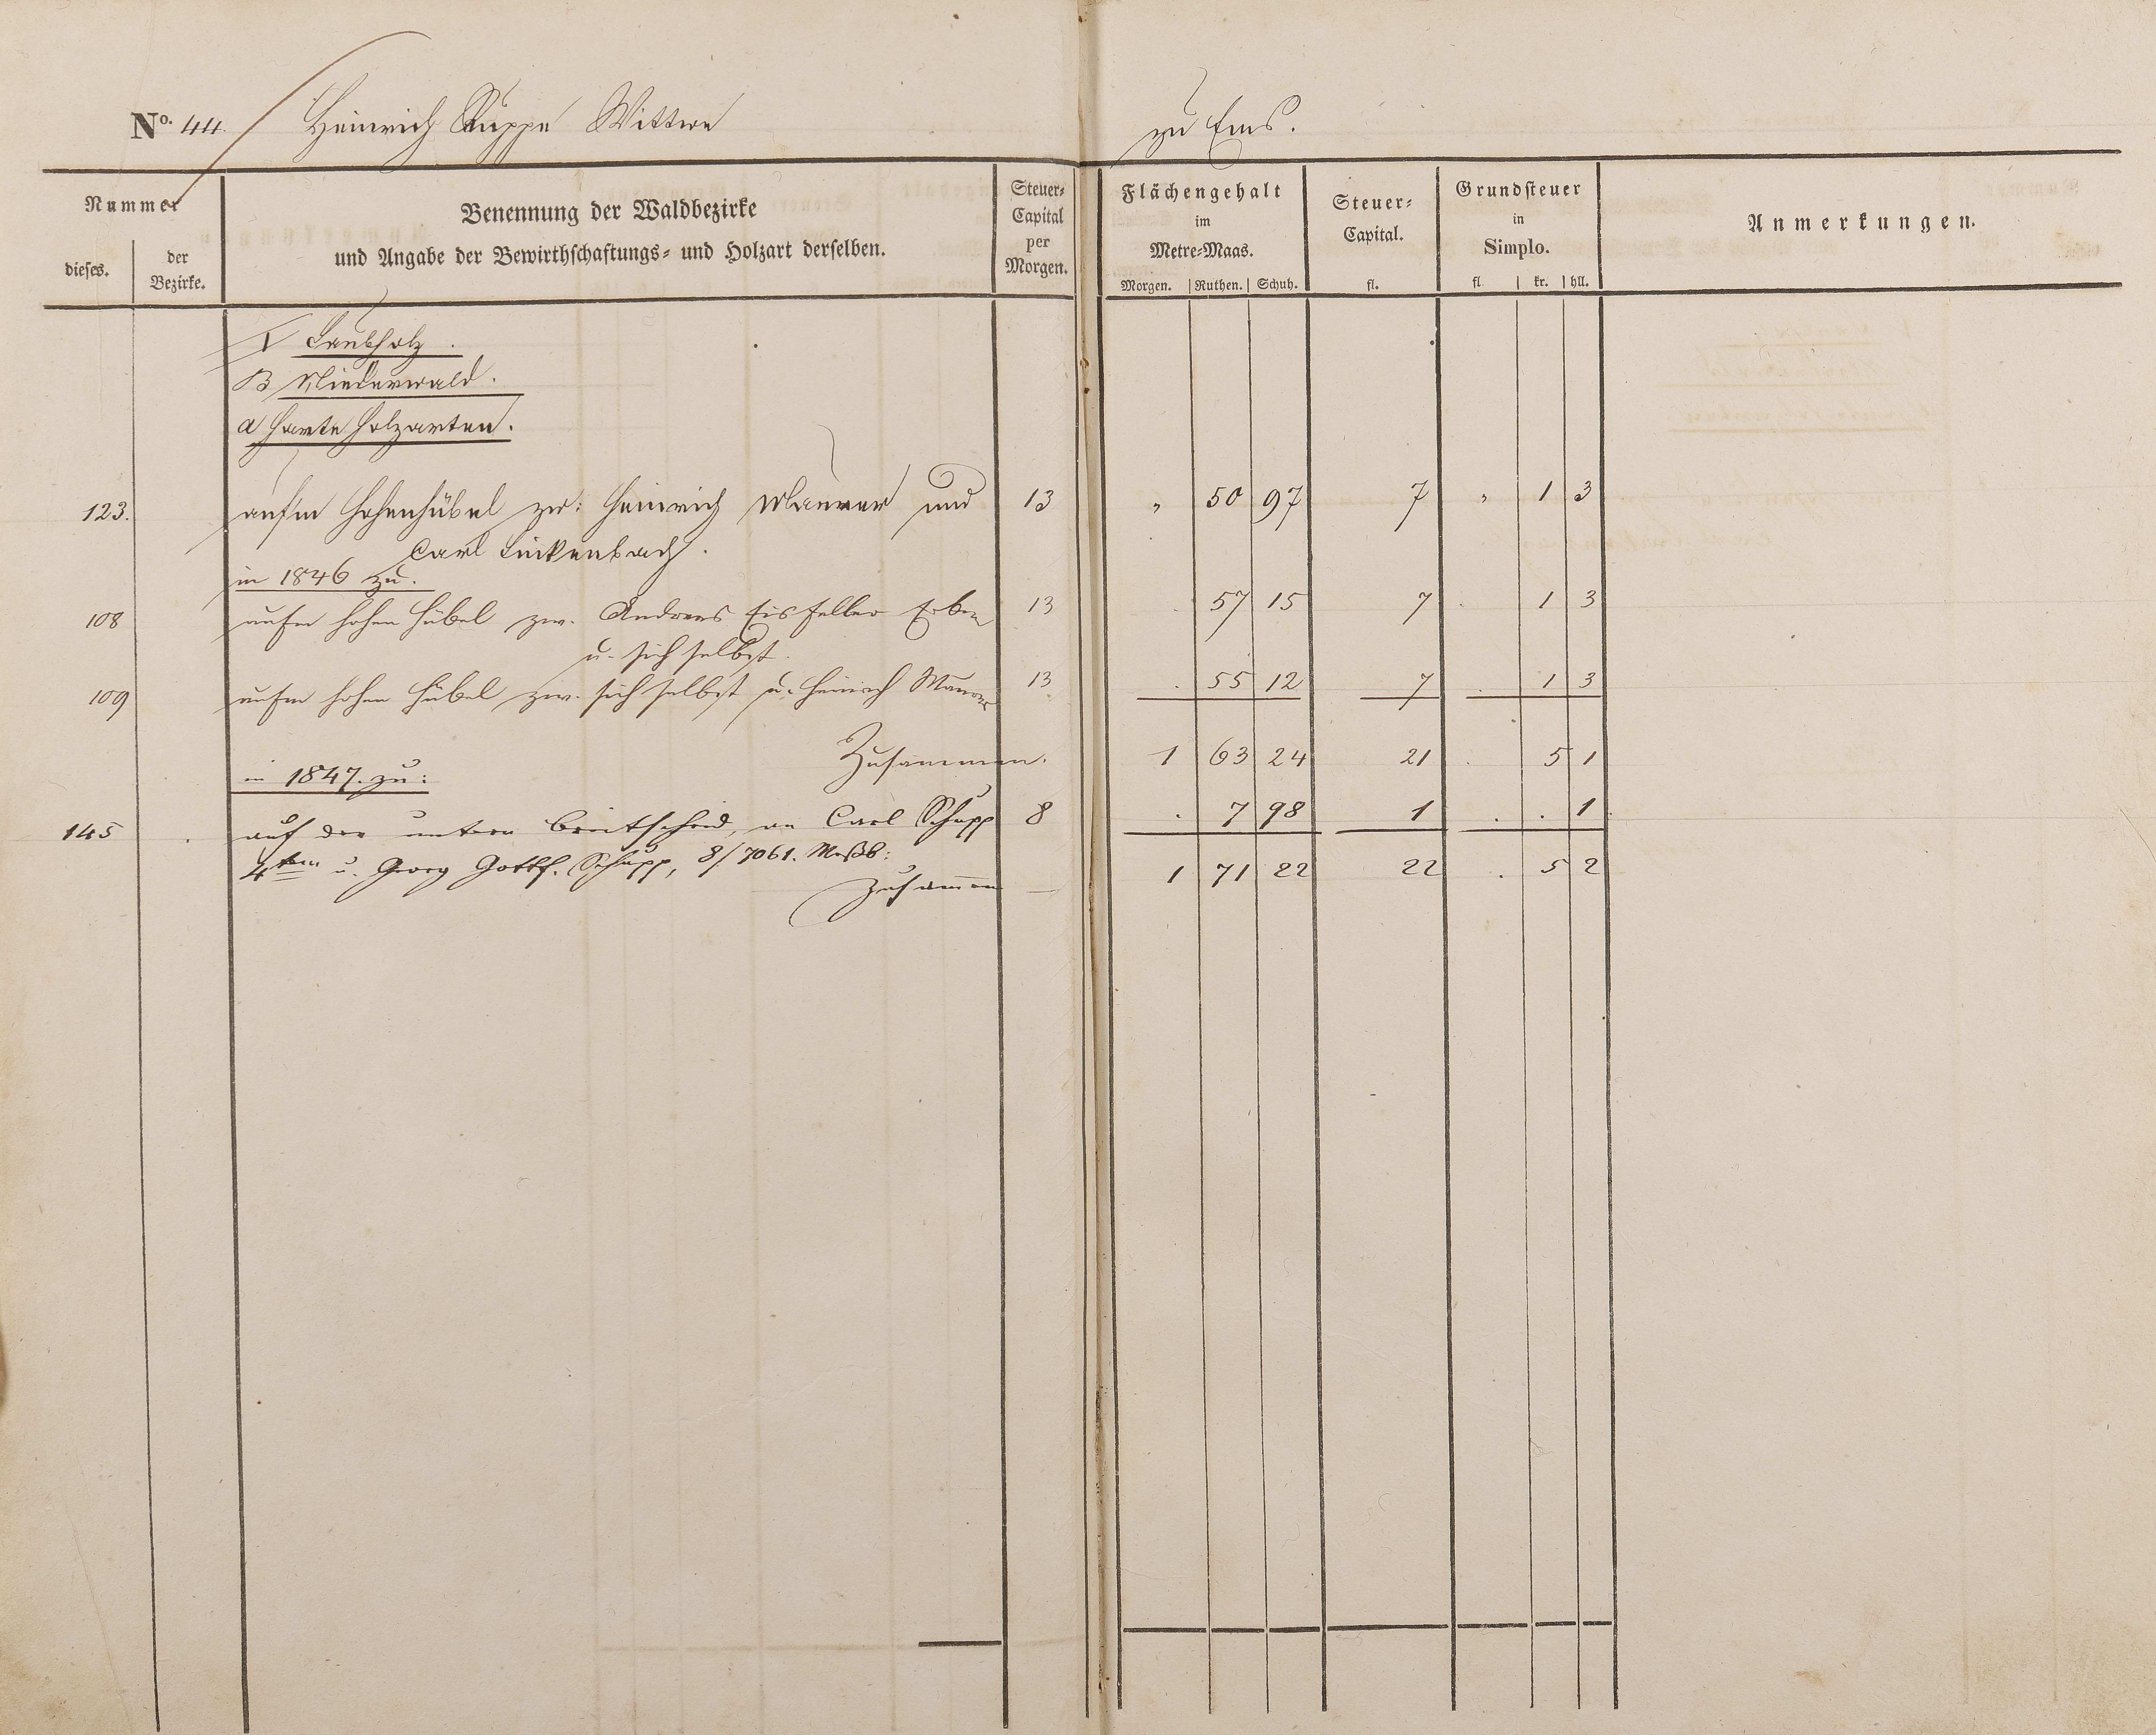 No. 44. Heinrich Ruppe Wittwe zu Ems.
Nummer
dieses.
der Bezirke.
Benennung der Waldbezirke
und Angabe der Bewirthschaftungs- und Holzart derselben.
Steuer-
Capital
per
Morgen.
Flächengehalt
im
Metre-Maas.
Morgen. Ruthen. Schuh.
Steuer-
Capital.
fl.
Grundsteuer
in
Simplo.
fl. kr. hll.
Anmerkungen.
I Laubholz.
B Niederwald.
a harte Holzarten.
123. auf'm Hohenhübel zw: Heinrich Maurer und 13 " 50 97 7 " 1 3
Carl Linkenbach.
in 1846 zu.
108 aufm hohen Hübel zw. Andreas Eisfeller Erben 13 . 57 15 7 . 1 3
u. sich selbst.
109 aufm hohen Hübel zw. sich selbst u. Heinrich Maurer 13 . 55 12 7 . 1 3
Zusammen. 1 63 24 21 . 5 1
in 1847. zu:
145 . auf der untern Breitscheid, an Carl Schupp 8 . 7 98 1 . . 1
4ten u. Georg Gottf. Schupp, 8/7061. Meßb:
Zusammen — 1 71 22 22 . 5 2